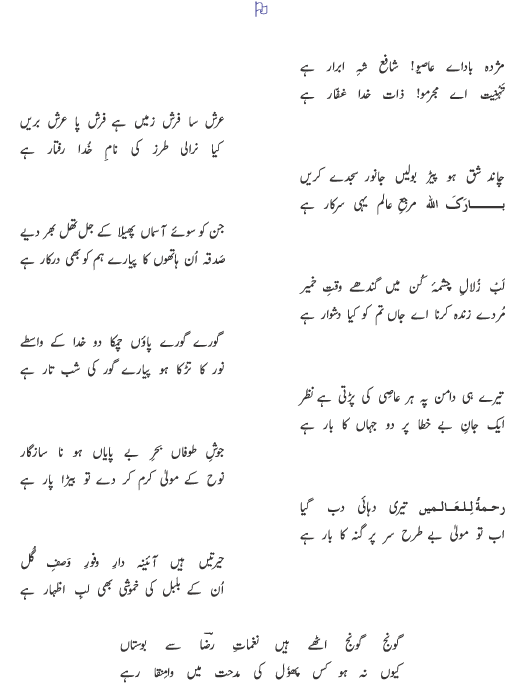 مژدہ باداے عاصیو! شافع شہِ ابرار ہے
تَہْنِیَت اے مجرمو! ذات خدا غفّار ہے
عرش سا فرش زمیں ہے فرش پا عرش بریں
کیا نرالی طرز کی نامِ خُدا رفتار ہے
چاند شق ہو پیڑ بولیں جانور سجدے کریں
بَارَکَ اللہ مرجعِ عالم یہی سرکار ہے
جن کو سوئے آسماں پھیلا کے جل تھل بھر دیے
صَدقہ اُن ہاتھوں کا پیارے ہم کو بھی درکار ہے
لَبْ زُلالِ چشمۂ کُن میں گندھے وقتِ خمیر
مُردے زندہ کرنا اے جاں تم کو کیا دشوار ہے
گورے گورے پاؤں چمکا دو خدا کے واسطے
نور کا تڑکا ہو پیارے گور کی شب تار ہے
تیرے ہی دامن پہ ہر عاصِی کی پڑتی ہے نظر
ایک جانِ بے خطا پر دو جہاں کا بار ہے
جوشِ طوفاں بحرِ بے پایاں ہو نا سازگار
نوح کے مولیٰ کرم کر دے تو بیڑا پار ہے
رحمةٌ لِلعَالمیں تیری دہائی دب گیا
اب تو مولیٰ بے طرح سر پر گنہ کا بار ہے
حیرتیں ہیں آئینہ دارِ وفورِ وَصفِ گُل
اُن کے بلبل کی خموشی بھی لبِ اظہار ہے
گونج گونج اٹھے ہیں نغماتِ رضاؔ سے بوستاں
کیوں نہ ہو کس پھول کی مدحت میں وامِنقار ہے